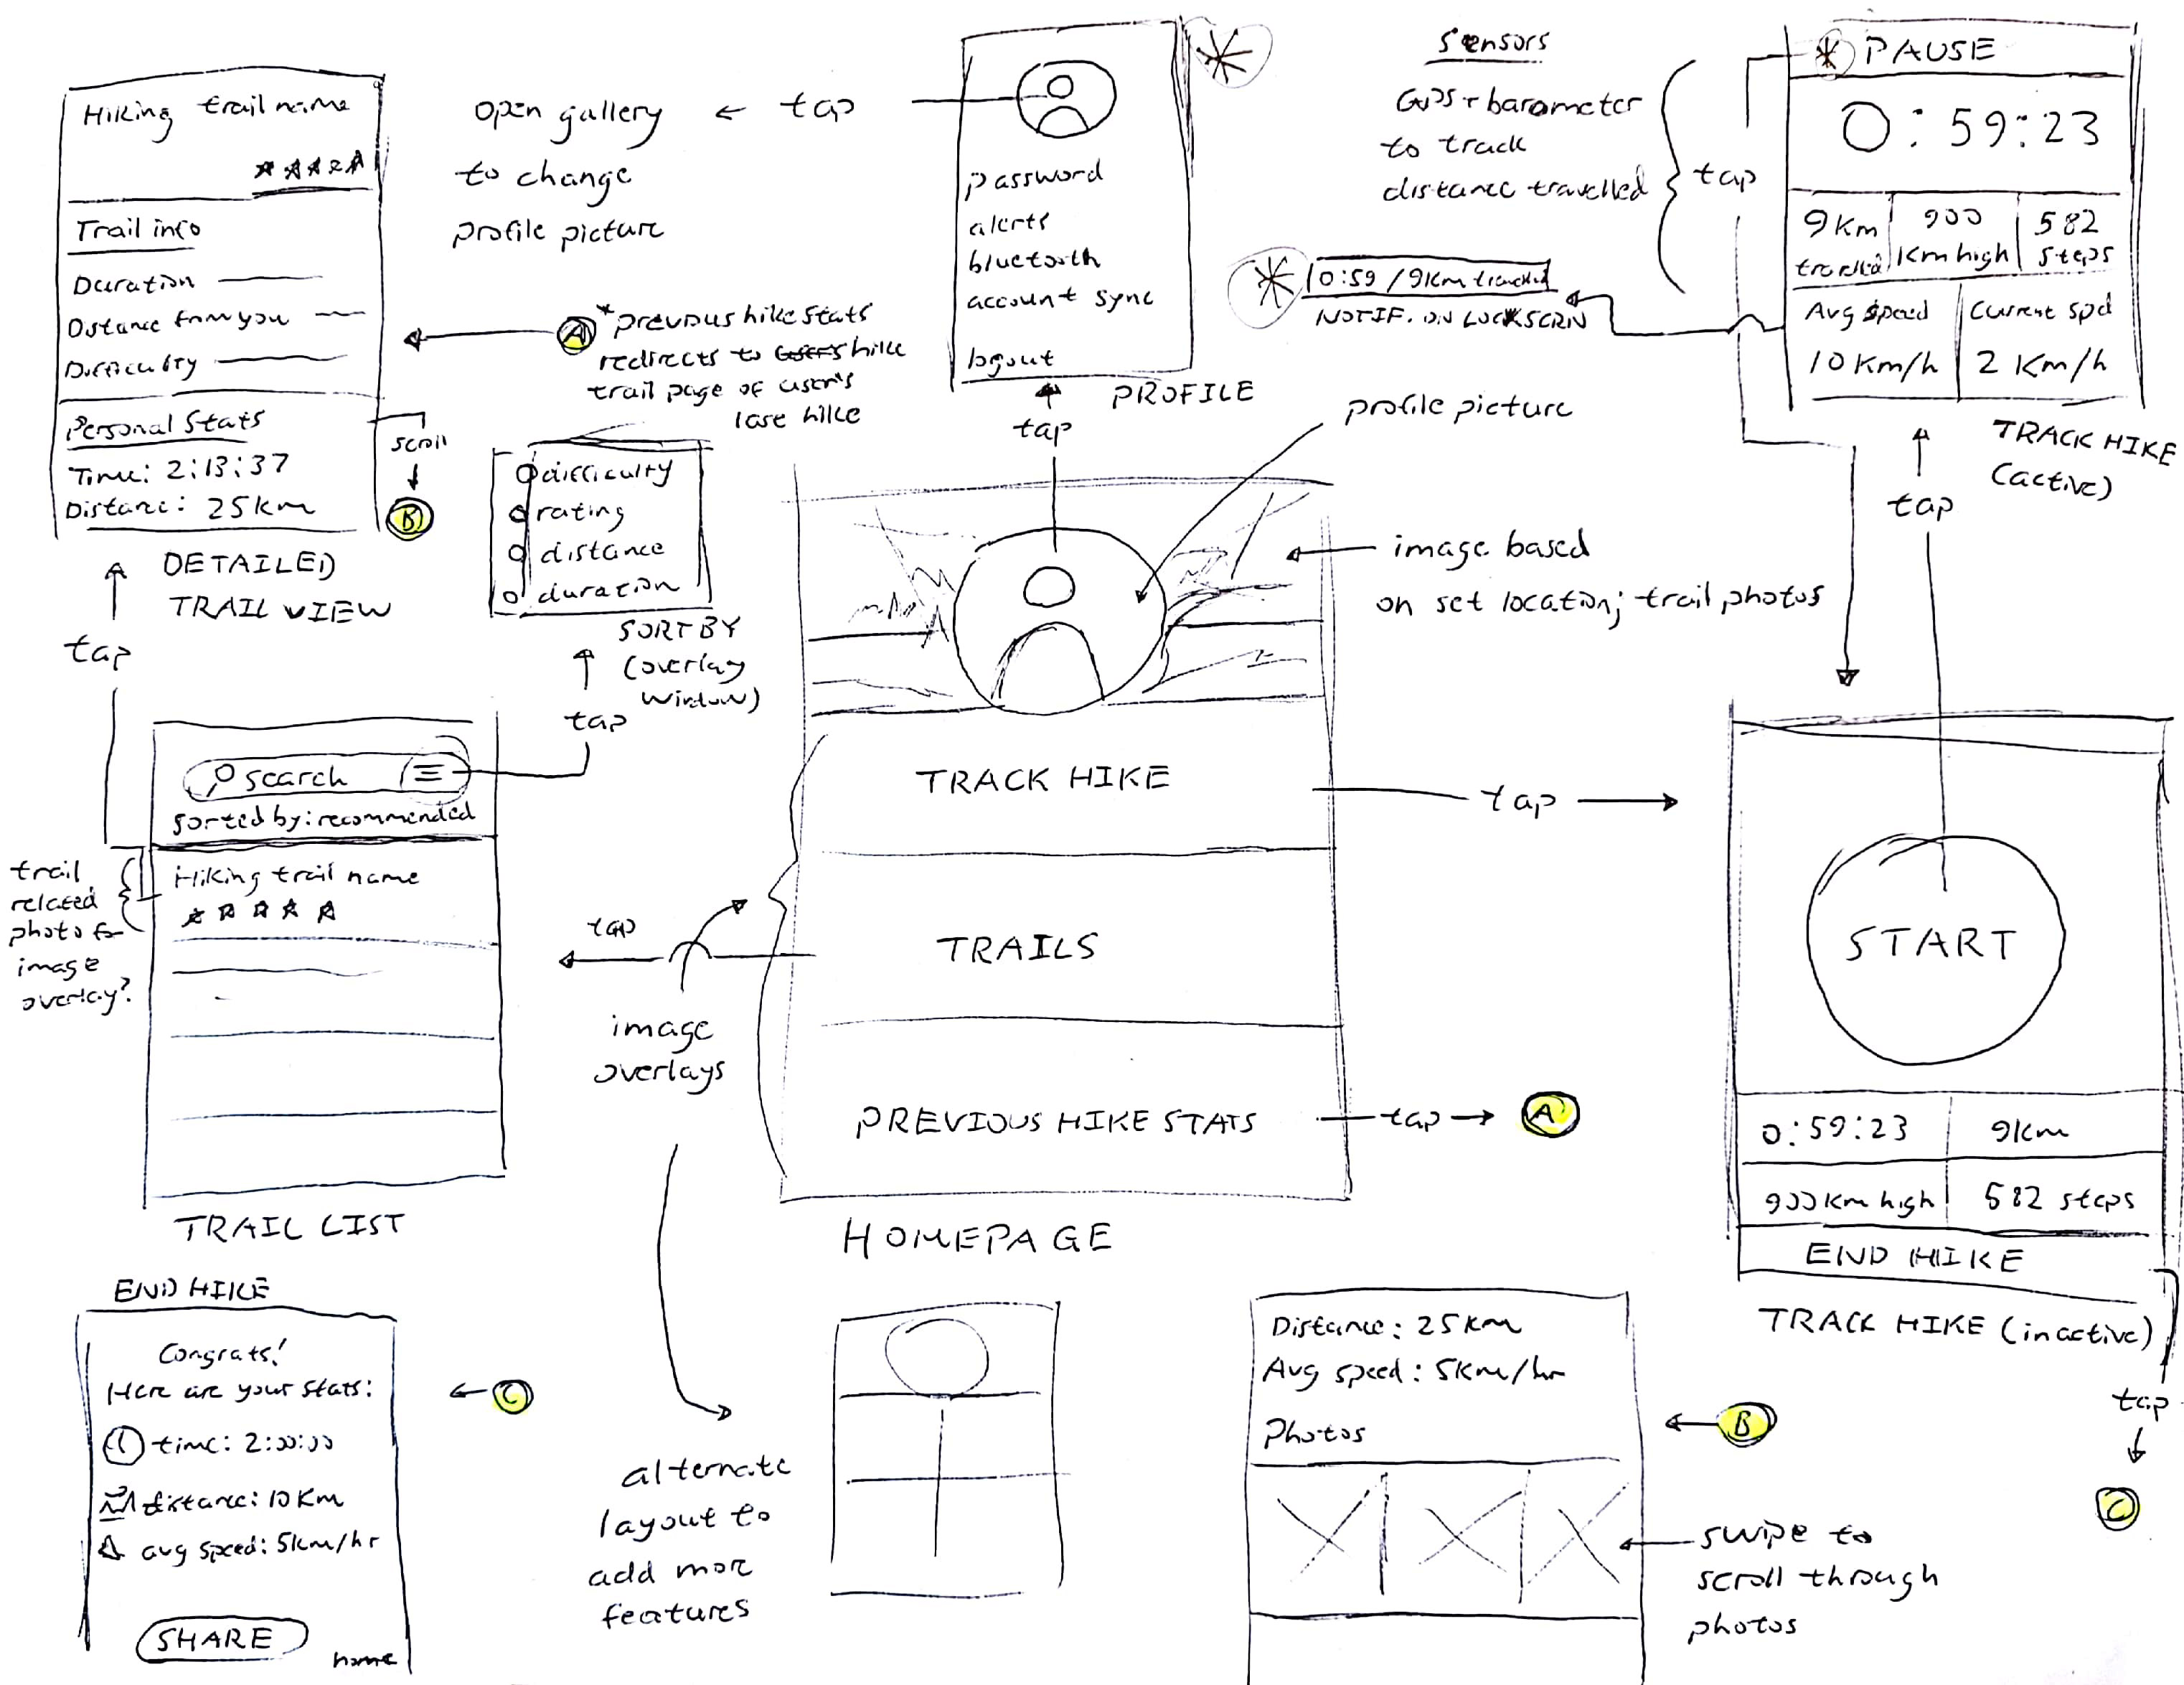 Hiking trail name
Trail info
Duration
Distance from you
Difficulty
Personal Stats
Time: 2:13:37
Distance: 25km
DETAILED
TRAIL VIEW
scroll
B
tap
open gallery
to change
profile picture
← tap
A
*previous hike stats
redirects to hike
trail page of user's
last hike
password
alerts
bluetooth
account sync
logout
PROFILE
tap
sensors
GPS + barometer
to track
distance travelled
tap
0:59 / 9km tracked
NOTIF. ON LOCKSCRN
PAUSE
0:59:23
9km
tracked
900
km high
582
steps
Avg speed
10 km/h
Current spd
2 km/h
TRACK HIKE
(active)
tap
difficulty
rating
distance
duration
SORT BY
(overlay
window)
tap
profile picture
image based
on set location; trail photos
search
sorted by: recommended
Hiking trail name
trail
related
photo for
image
overlay?
TRAIL LIST
tap
image
overlays
TRACK HIKE
TRAILS
PREVIOUS HIKE STATS
HOMEPAGE
tap
tap → A
START
0:59:23
9km
900 km high
582 steps
END HIKE
TRACK HIKE (inactive)
tap
C
END HIKE
Congrats!
Here are your stats:
time: 2:00:00
distance: 10 km
avg speed: 5km/hr
SHARE
home
← C
alternate
layout to
add more
features
Distance: 25km
Avg speed: 5km/hr
Photos
← B
swipe to
scroll through
photos